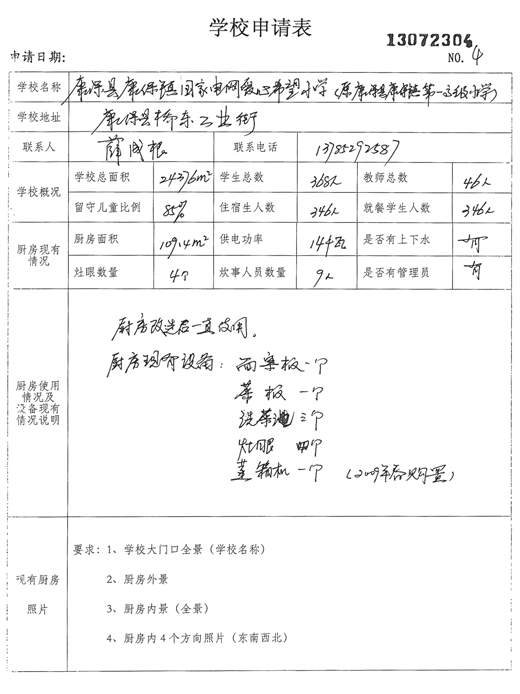 学校申请表
13072304
申请日期： NO. 4
学校名称 康保县康保镇国家电网爱心希望小学（原康保县康保镇第一完全小学）
学校地址 康保县桥东工业街
联系人 薛成根 联系电话 13785292587
学校概况 学校总面积 24376m² 学生总数 368人 教师总数 46人
留守儿童比例 85% 住宿生人数 346人 就餐学生人数 346人
厨房现有情况 厨房面积 109.4m² 供电功率 144瓦 是否有上下水 有
灶眼数量 4个 炊事人员数量 9人 是否有管理员 有
厨房使用
情况及
设备现有
情况说明
厨房改造后一直使用。
厨房现有设备：面案板一个
菜板 一个
洗菜池 三个
灶眼 四个
蒸箱机 一个 （2009年春购置）
现有厨房
照片
要求：1、学校大门口全景（学校名称）
2、厨房外景
3、厨房内景（全景）
4、厨房内4个方向照片（东南西北）